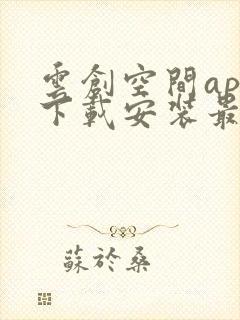 雲創空間ap
下載安裝最
蘇於桑